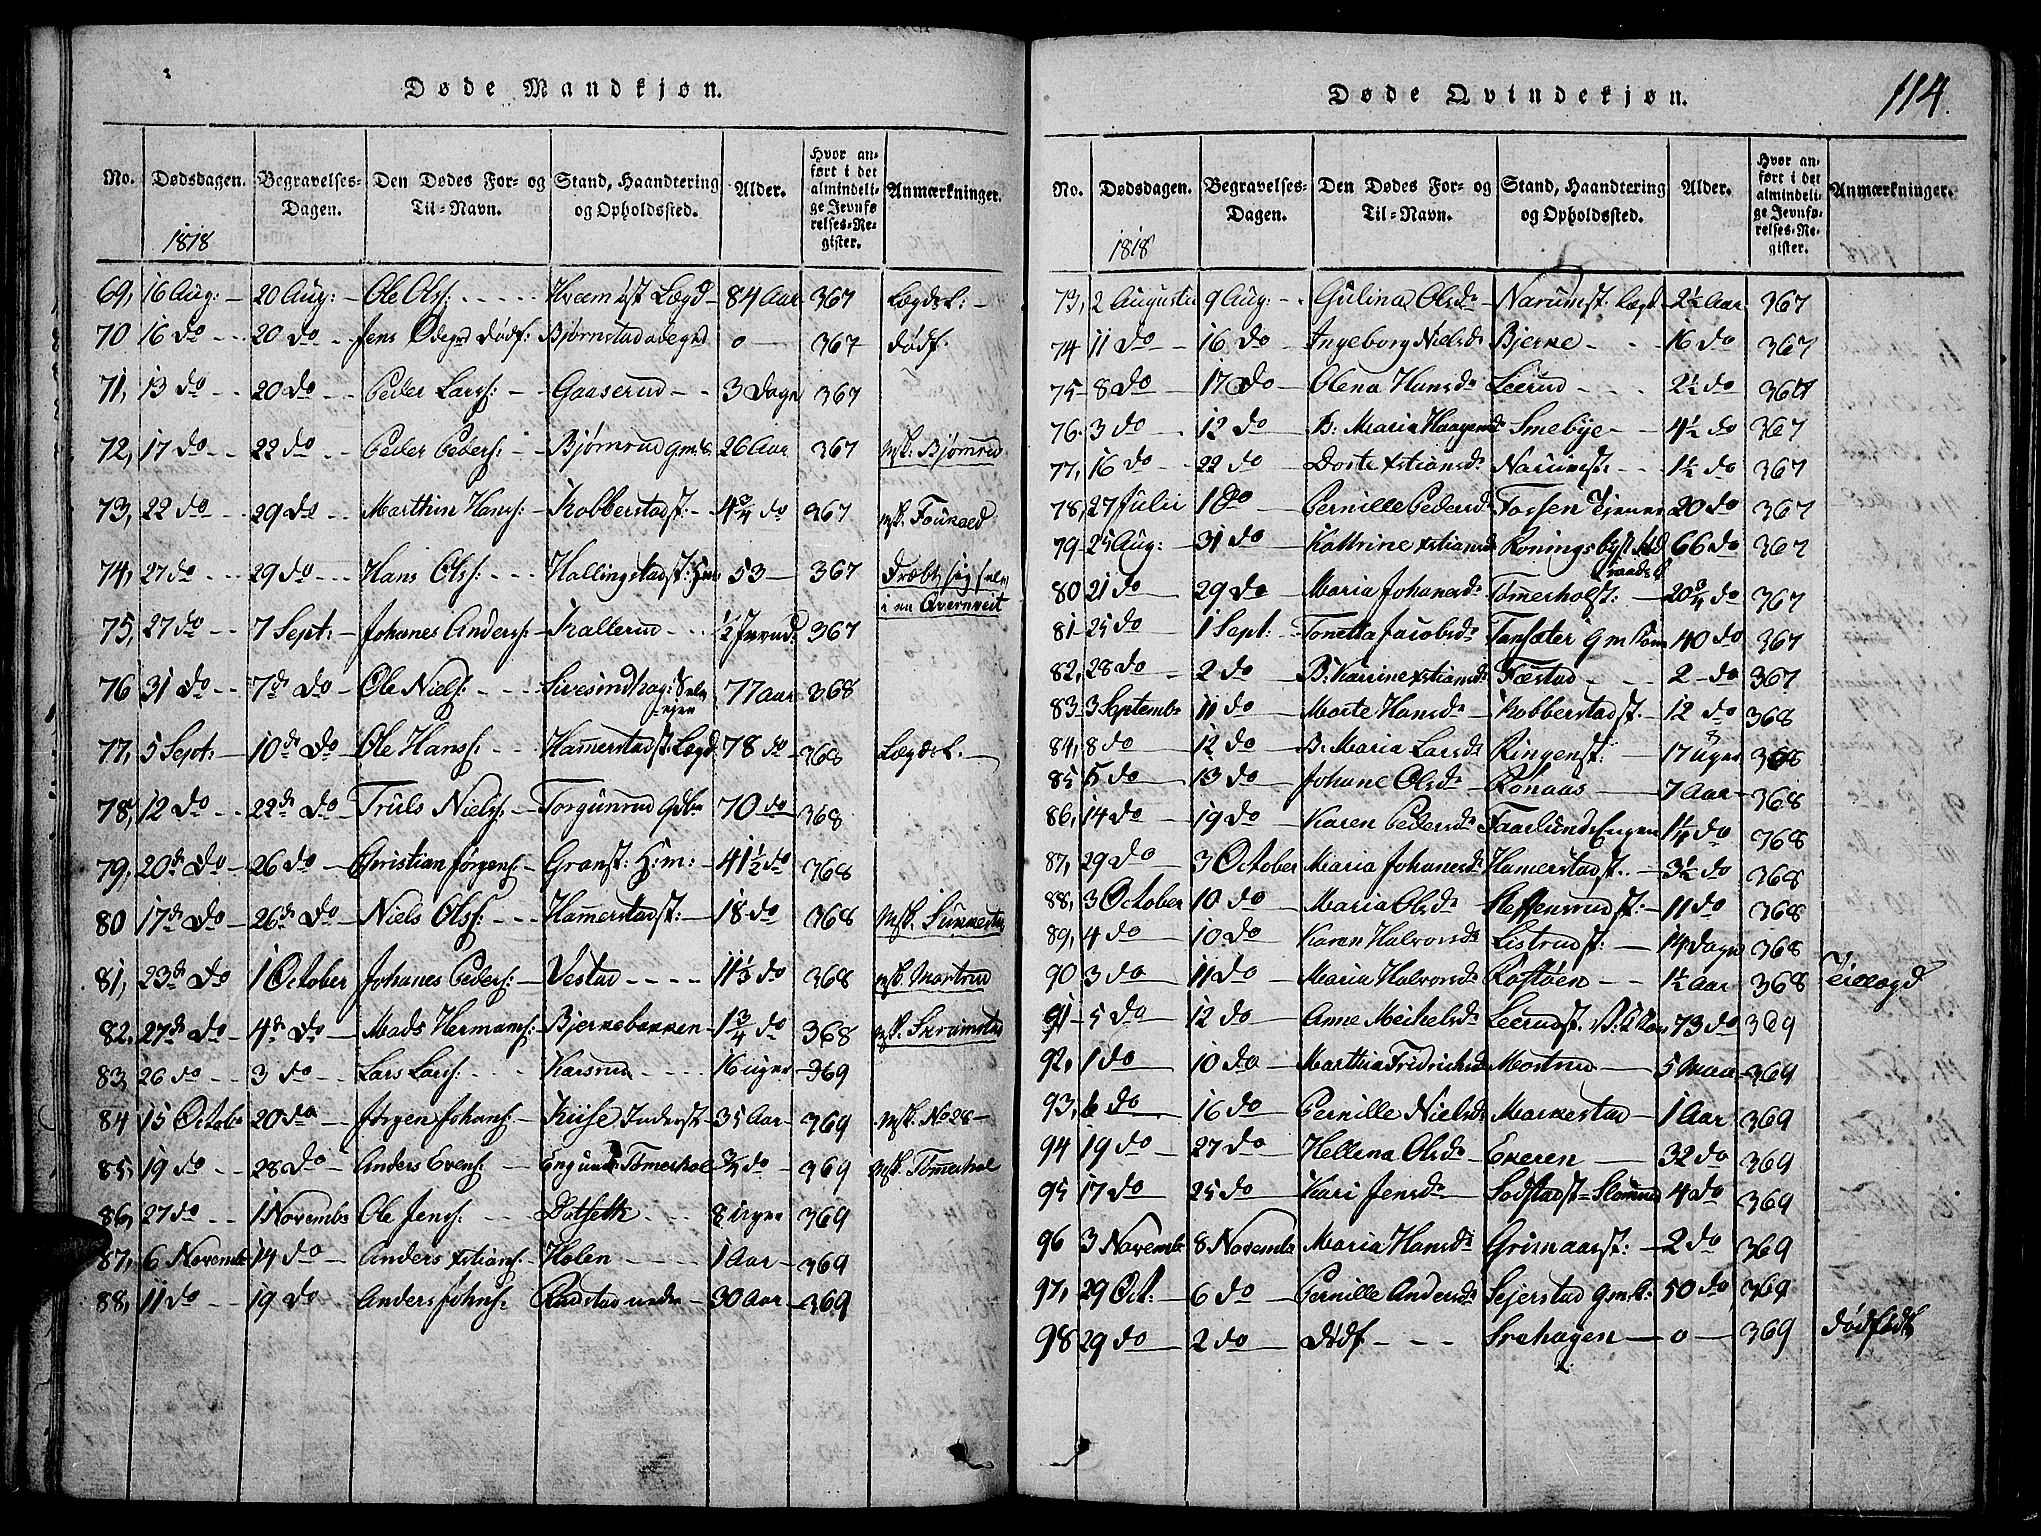 Døde Mandkjøn.
No. Dødsdagen. Begravelses-Dagen. Den Dødes For- og Til-Navn. Stand, Haandtering og Opholdssted. Alder. Hvor anført i det almindelige Jevnførelses-Register. Anmærkninger.
1818
69, 16 Aug: 20 Aug: Ole Olss: Hvæm Lægd 84 Aar 367 Lægdsl:
70 16 do 20 do Jens Ødegrd dødf: Bjørnstadødegrd 0 367 dødf.
71, 13 do 20 do Peder Larss: Gaaserud 3 Dage 367
72, 17 do 22 do Peder Peders: Bjørnerud gm: 26 Aar 367 Bjørnerud
73, 22 do 29 do Marthin Hanss: Kobberstadst: 4 3/4 do 367
74, 27 do 29 do Hans Olss: Hallingstadst: 53 367 Dræbt sig selv i en Qvernveit
75, 27 do 7 Sept: Johanes Anderss: Kallerud 1/2 367
76 31 do 7de do Ole Niels: Sivesindhag: Selvejer 77 Aar 368
77, 5 Sept: 10de do Ole Hanss: Hamerstadst: Lægd 78 do 368 Lægdsl.
78, 12 do 22de do Truls Niels: Torgunrud 70 do 368
79, 20de do 26 do Christian Jørgens: Granst: H:m: 41 1/2 do 368
80 17de do 26de do Niels Olss: Hamerstadst: 18 do 368
81, 23de do 1 October Johanes Peders: Vestad 11 1/3 do 368
82, 27de do 4de do Mads Hermans: Bjerkebakken 1 3/4 do 368
83, 26 do 3 do Lars Larss: Karsrud 16 uger 369
84 15 Octobr 20 do Jørgen Johans: Kiise Inderst 35 Aar 369 No 28
85, 19 do 28 do Anders Evens: Engund Tømerhol 3/4 do 369 Tømerhol
86, 27 do 1 Novembr Ole Jenss: 8 uger 369
87, 6 Novembr 14 do Anders Xstians: Holen 1 Aar 369
88, 11 do 19 do Anders Johns: Rudstad 30 Aar 369
Døde Qvindekjøn.
114.
No. Dødsdagen. Begravelses-Dagen. Den Dødes For- og Til-Navn. Stand, Haandtering og Opholdssted. Alder. Hvor anført i det almindelige Jevnførelses-Register. Anmærkninger.
1818
73, 2 Augusti 9 Aug: Gulina Olsdr Narumst: Lægd 2 1/2 Aar 367
74 11 do 16 do Ingeborg Nielsdr Bjerke 16 do 367
75 8 do 17 do Olena Hansdr Leerud 2 1/2 do 367
76. 3 do 12 do B: Maria Haagensdr Smebye 4 1/2 do 367
77, 16 do 22 do Dorte Xstiansdr Narumst: 1 1/2 do 367
78, 27 Julii 1 do Pernille Pedersdr Fossen Tjener 20 do 367
79 25 Aug: 31 do Kathrine Xstiansdr 66 do 367
80 21 do 29 do Maria Johanesdr Tømerholst: 20 3/4 do 367
81 25 do 1 Sept: Tonetta Jacobsdr Tansæter gm Kone 40 do 367
82, 28 do 2 do B: Karrine Xstiansdr Fæstad 2 do 367
83 3 Septembr 11 do Marte Hansdr Kobberstadst. 12 do 368
84, 8 do 12 do B: Maria Larsdr Ringenst: 17 uger 368
85 5 do 13 do Johane Olsdr Rønaas 7 Aar 368
86, 14 do 19 do Karen Pedersdr Faarlunds Engen 1 1/4 do 368
87, 29 do 3 October Maria Johanesdr Hamerstadst. 3 1/2 do 368
88, 3 October 10 do Maria Olsdr Steffensrudst: 11 do 368
89, 4 do 10 do Karen Halvorsdr Listrudst: 14 Dage 368
90 3 do 11 do Maria Halvorsdr Rostøen 1 1/2 Aar 368
91 5 do 12 do Anne Meichelsdr Leerudst. 73 do 369
92, 1 do 10 do Marthia Fredrichsdr Mortrud 5 Maa 369
93, 6 do 16 do Pernille Nielsdr Markestad 1 Aar 369
94 19 do 27 do Hellena Olsdr Ekeren 32 do 369
95 17 do 25 do Kari Jensdr Sodstadst= 4 do 369
96 3 Novembr 8 Novembr Maria Hansdr Grimaarst: 2 do 369
97, 29 Oct: 6 do Pernille Andersdr Sejerstad gm: 50 do 369
98 29 do 2 do dødf Srehagen 0 369 dødfødt